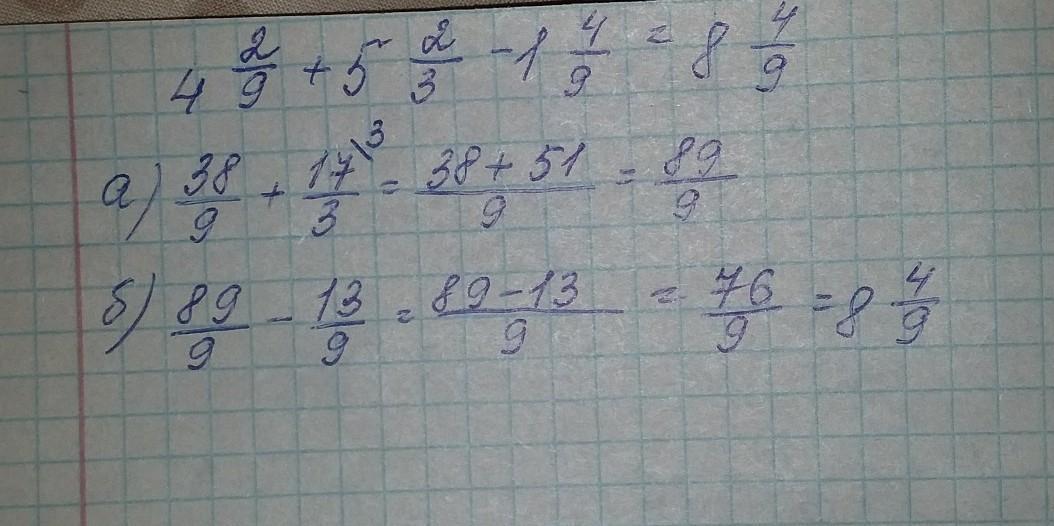 4 2/9 + 5 2/3 - 1 4/9 = 8 4/9
а) 38/9 + 17\3/3 = 38 + 51/9 = 89/9
б) 89/9 - 13/9 = 89 - 13/9 = 76/9 = 8 4/9